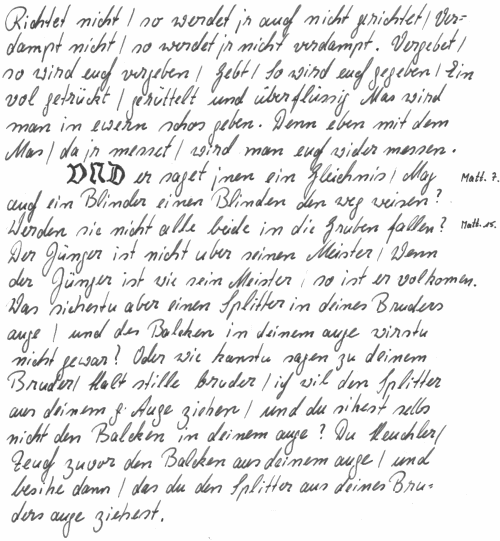 Richtet nicht / so werdet jr auch nicht gerichtet / Ver-
dampt nicht / so werdet jr nicht verdampt. Vergebet /
so wird euch vergeben / Gebt / So wird euch gegeben / Ein
vol getrückt / gerüttelt und überflüssig Mas wird
man in ewern schos geben. Denn eben mit dem
Mas / da jr messet / wird man euch wider messen.
VND er saget jnen ein Gleichnis / Mag Matt. 7.
auch ein Blinder einen Blinden den weg weisen?
Werden sie nicht alle beide in die Gruben fallen? Matt. 15.
Der Jünger ist nicht uber seinen Meister / Wenn
der Jünger ist wie sein Meister / so ist er volkomen.
Was sihestu aber einen Splitter in deines Bruders
auge / und des Balcken in deinem auge wirstu
nicht gewar? Oder wie kanstu sagen zu deinem
Bruder / Halt stille bruder / ich wil den Splitter
aus deinem Auge ziehen / und du sihest selbs
nicht den Balcken in deinem auge? Du Heuchler /
Zeuch zuvor den Balcken aus deinem auge / und
besihe dann / das du den Splitter aus deines Bru-
ders auge ziehest.